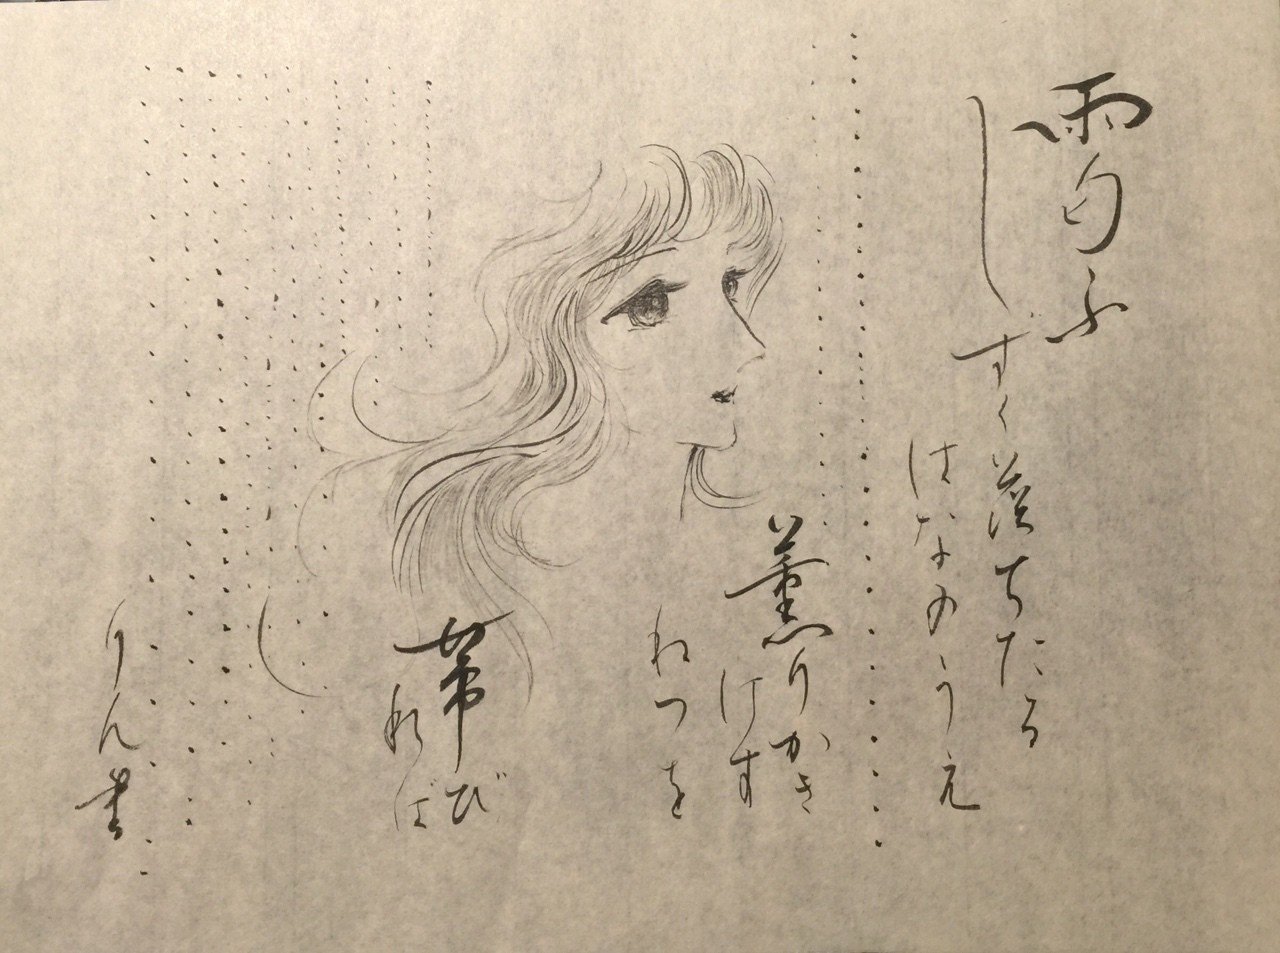 雨匂ふ
しずく落ちたる
はなのうえ
薫りかき
けす
ねつを
帯び
ればば
りん書